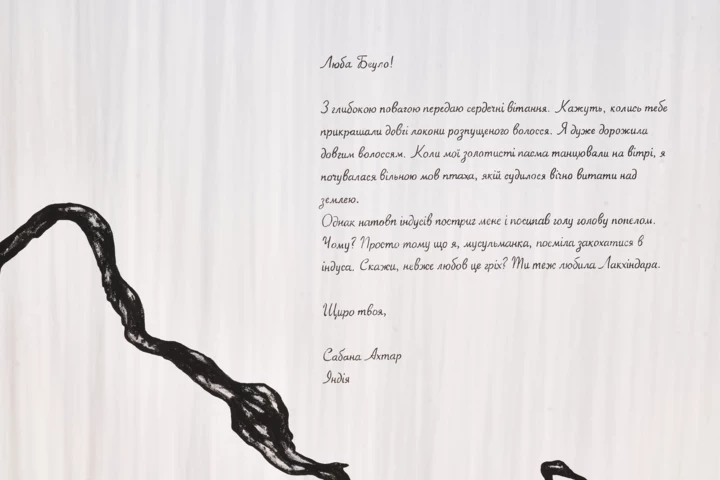 Люба Беуло!
З глибокою повагою передаю сердечні вітання. Кажуть, колись тебе
прикрашали довгі локони розпущеного волосся. Я дуже дорожила
довгим волоссям. Коли мої золотисті пасма танцювали на вітрі, я
почувалася вільною мов птаха, якій судилося вічно витати над
землею.
Однак натовп індусів постриг мене і посипав голу голову попелом.
Чому? Просто тому що я, мусульманка, посміла закохатися в
індуса. Скажи, невже любов це гріх? Ти теж любила Лакхіндара.
Щиро твоя,
Сабана Ахтар
Індія